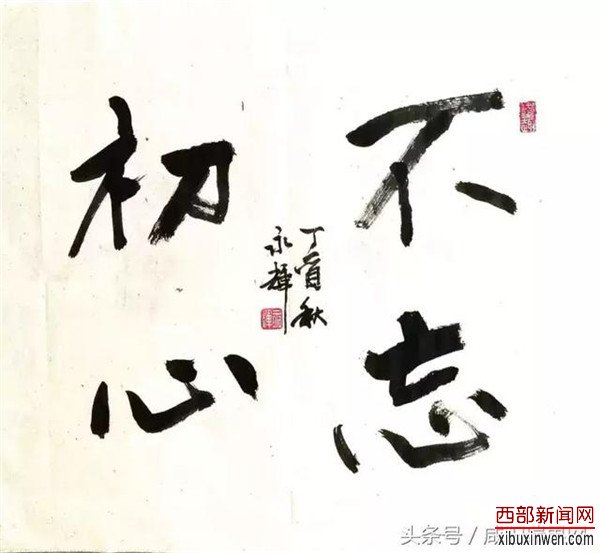 不忘
初心
丁酉秋
永辉
西部新闻网
xibuxinwen.com
头条号/咸